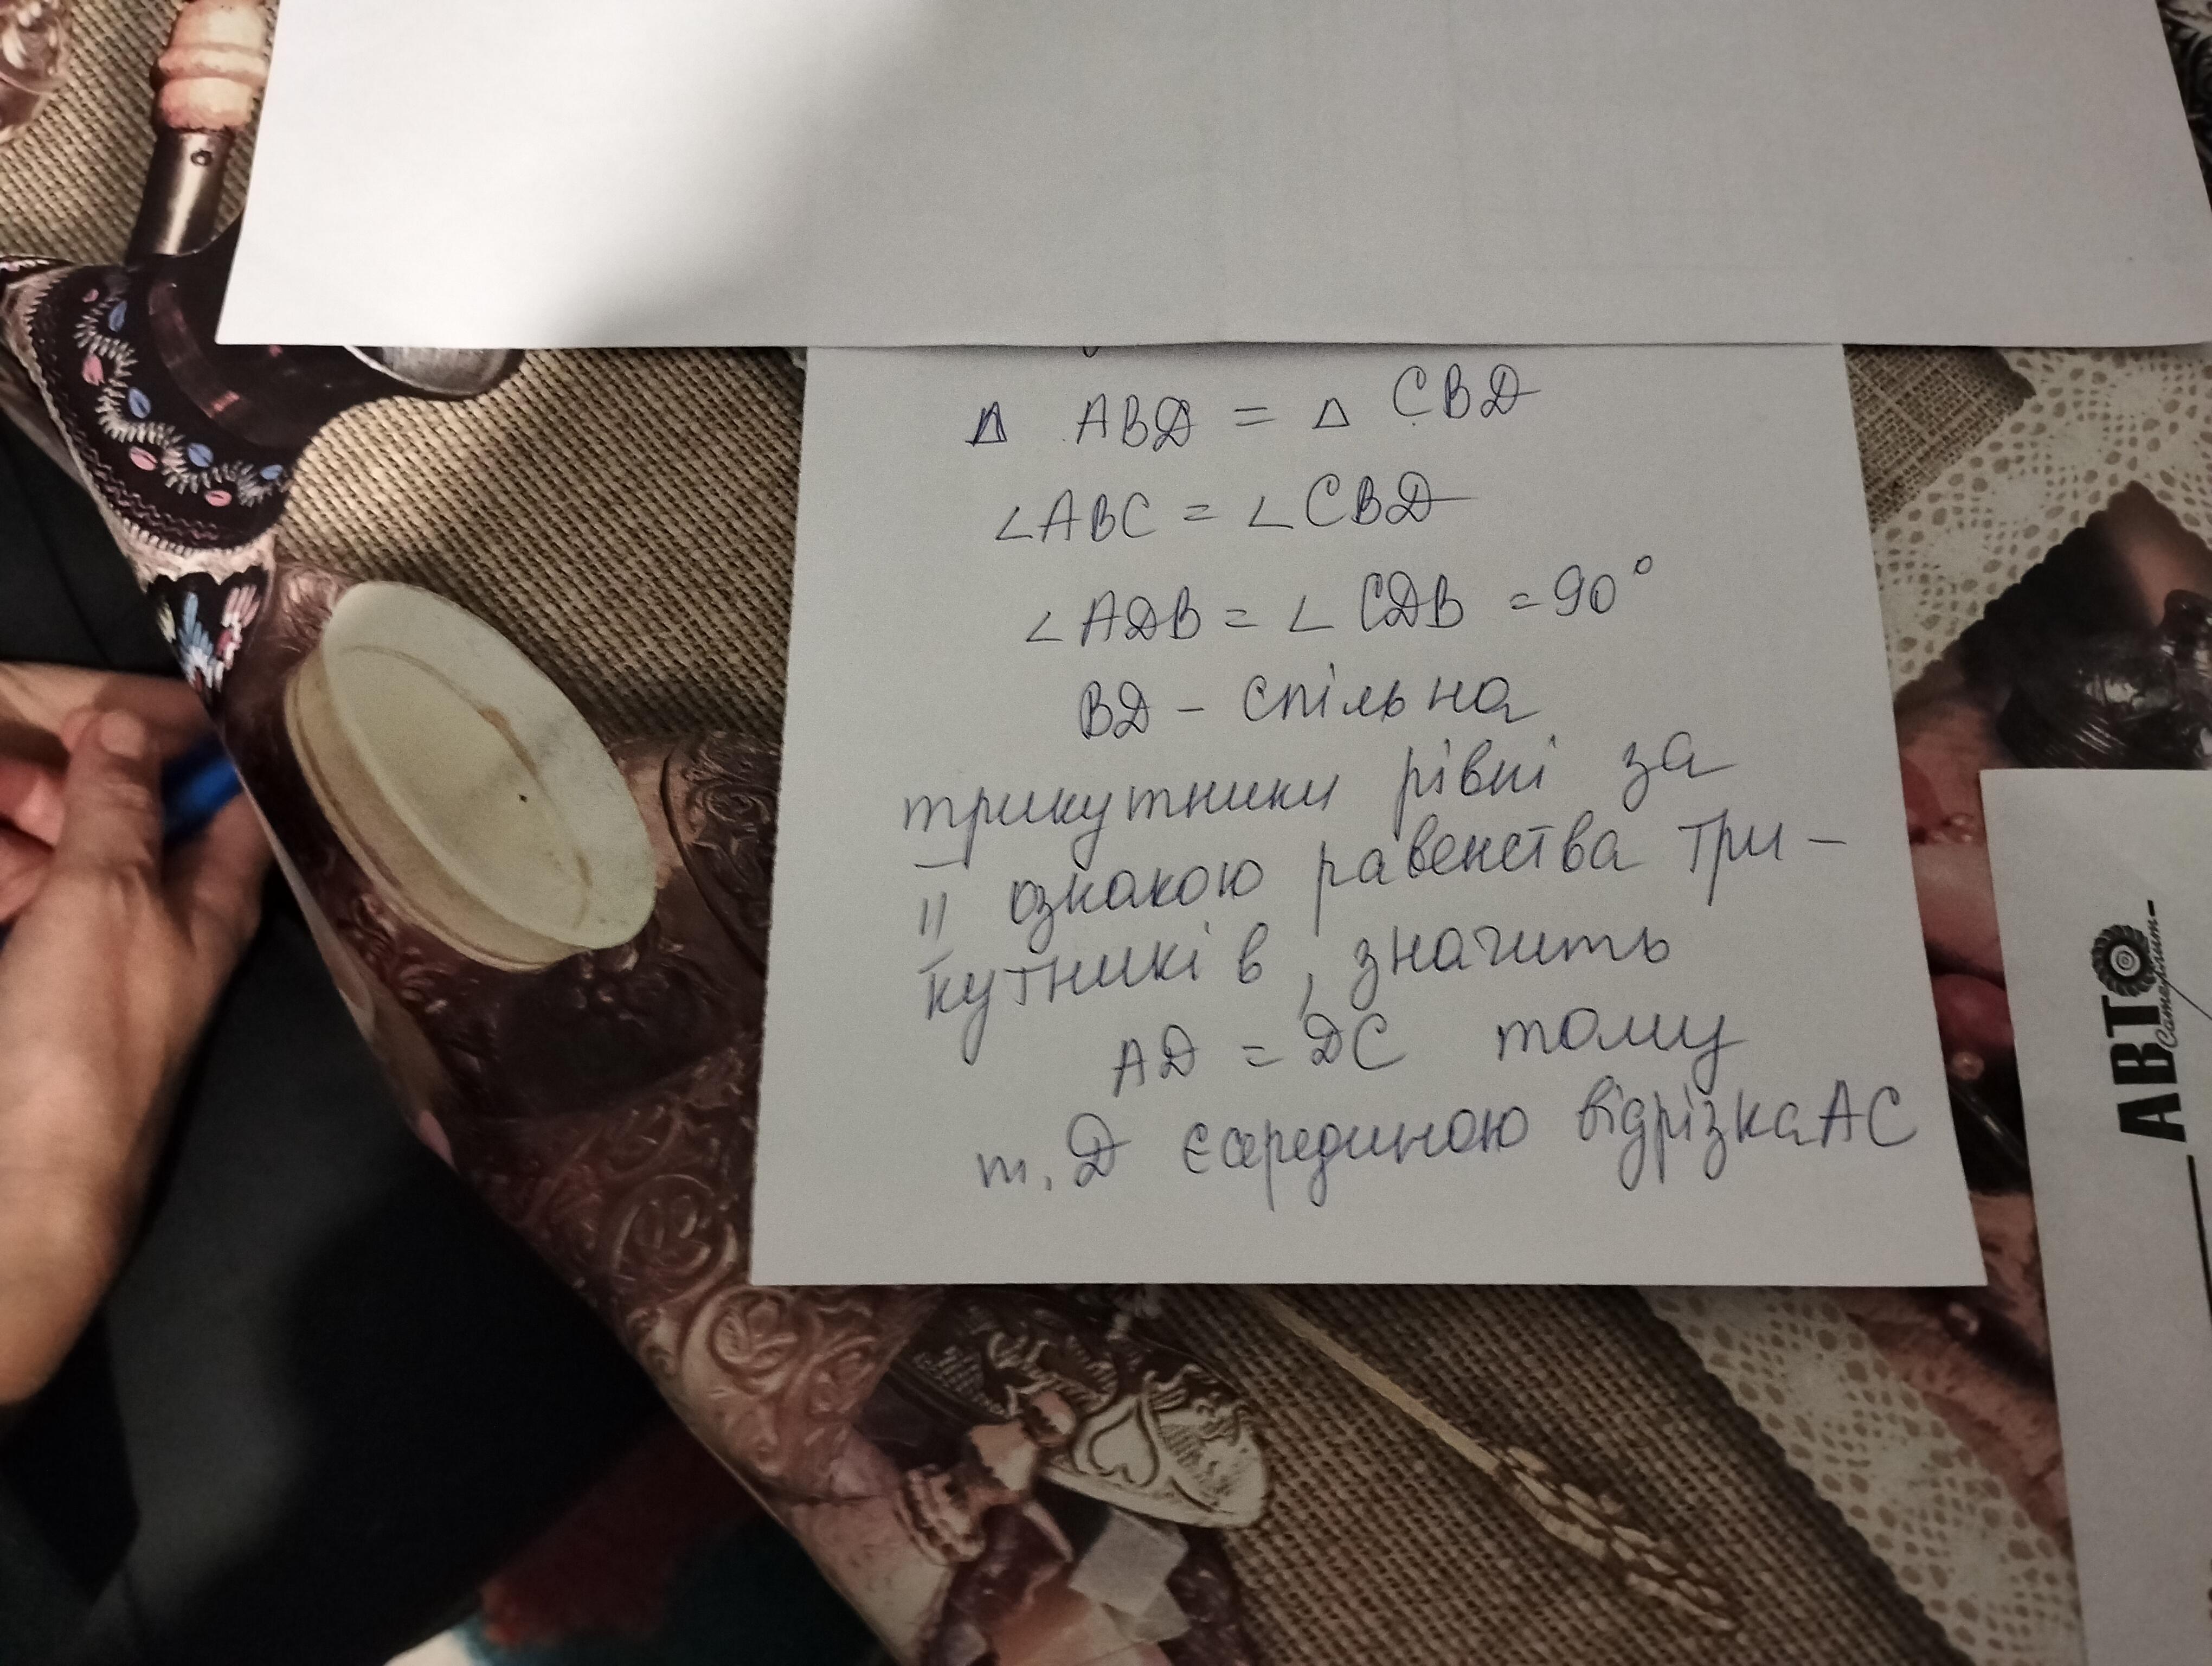 Δ ABD = Δ CBD
∠ABC = ∠CBD
∠ADB = ∠CDB = 90°
BD - спільна
трикутники рівні за
II ознакою равенства три-
кутників, значить
AD = DC тому
т. D є серединою відрізка AC
АВТО